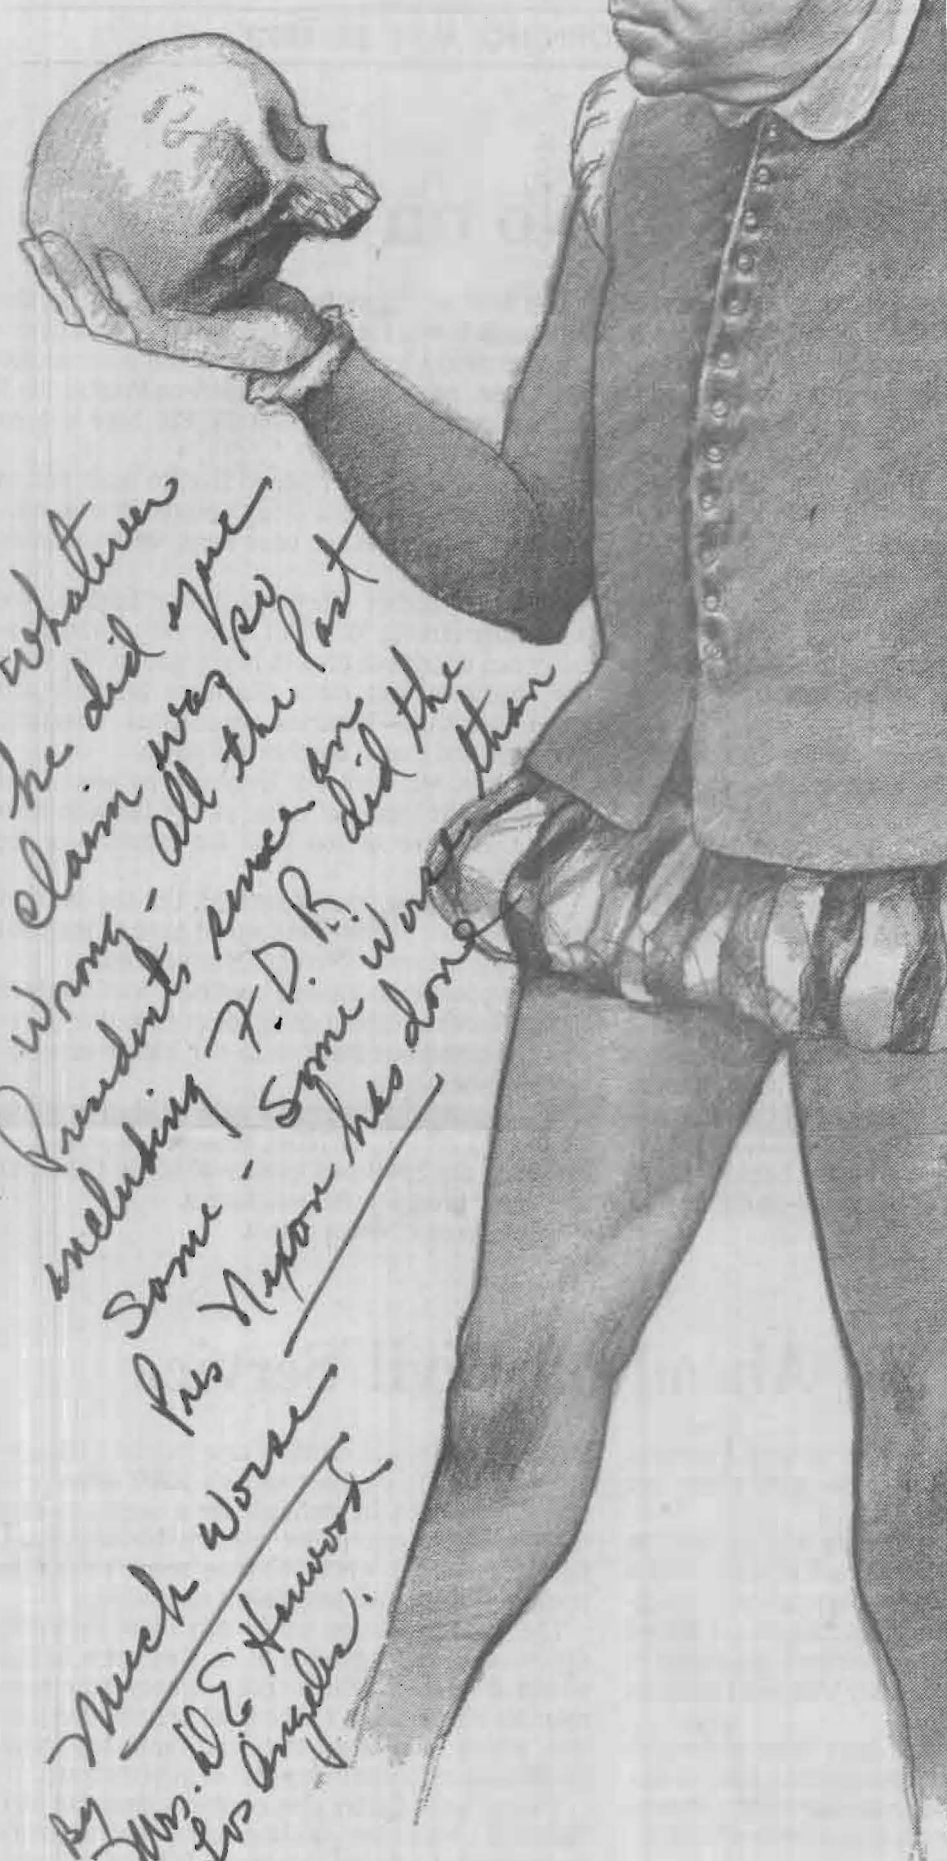 Whatever
he did you
claim was so
wrong - all the Past
Presidents since an
including F.D.R. did the
Same - Some Worse than
Pres Nixon has done
Much Worse
By Mrs. D. E. Harwood
Los Angeles.